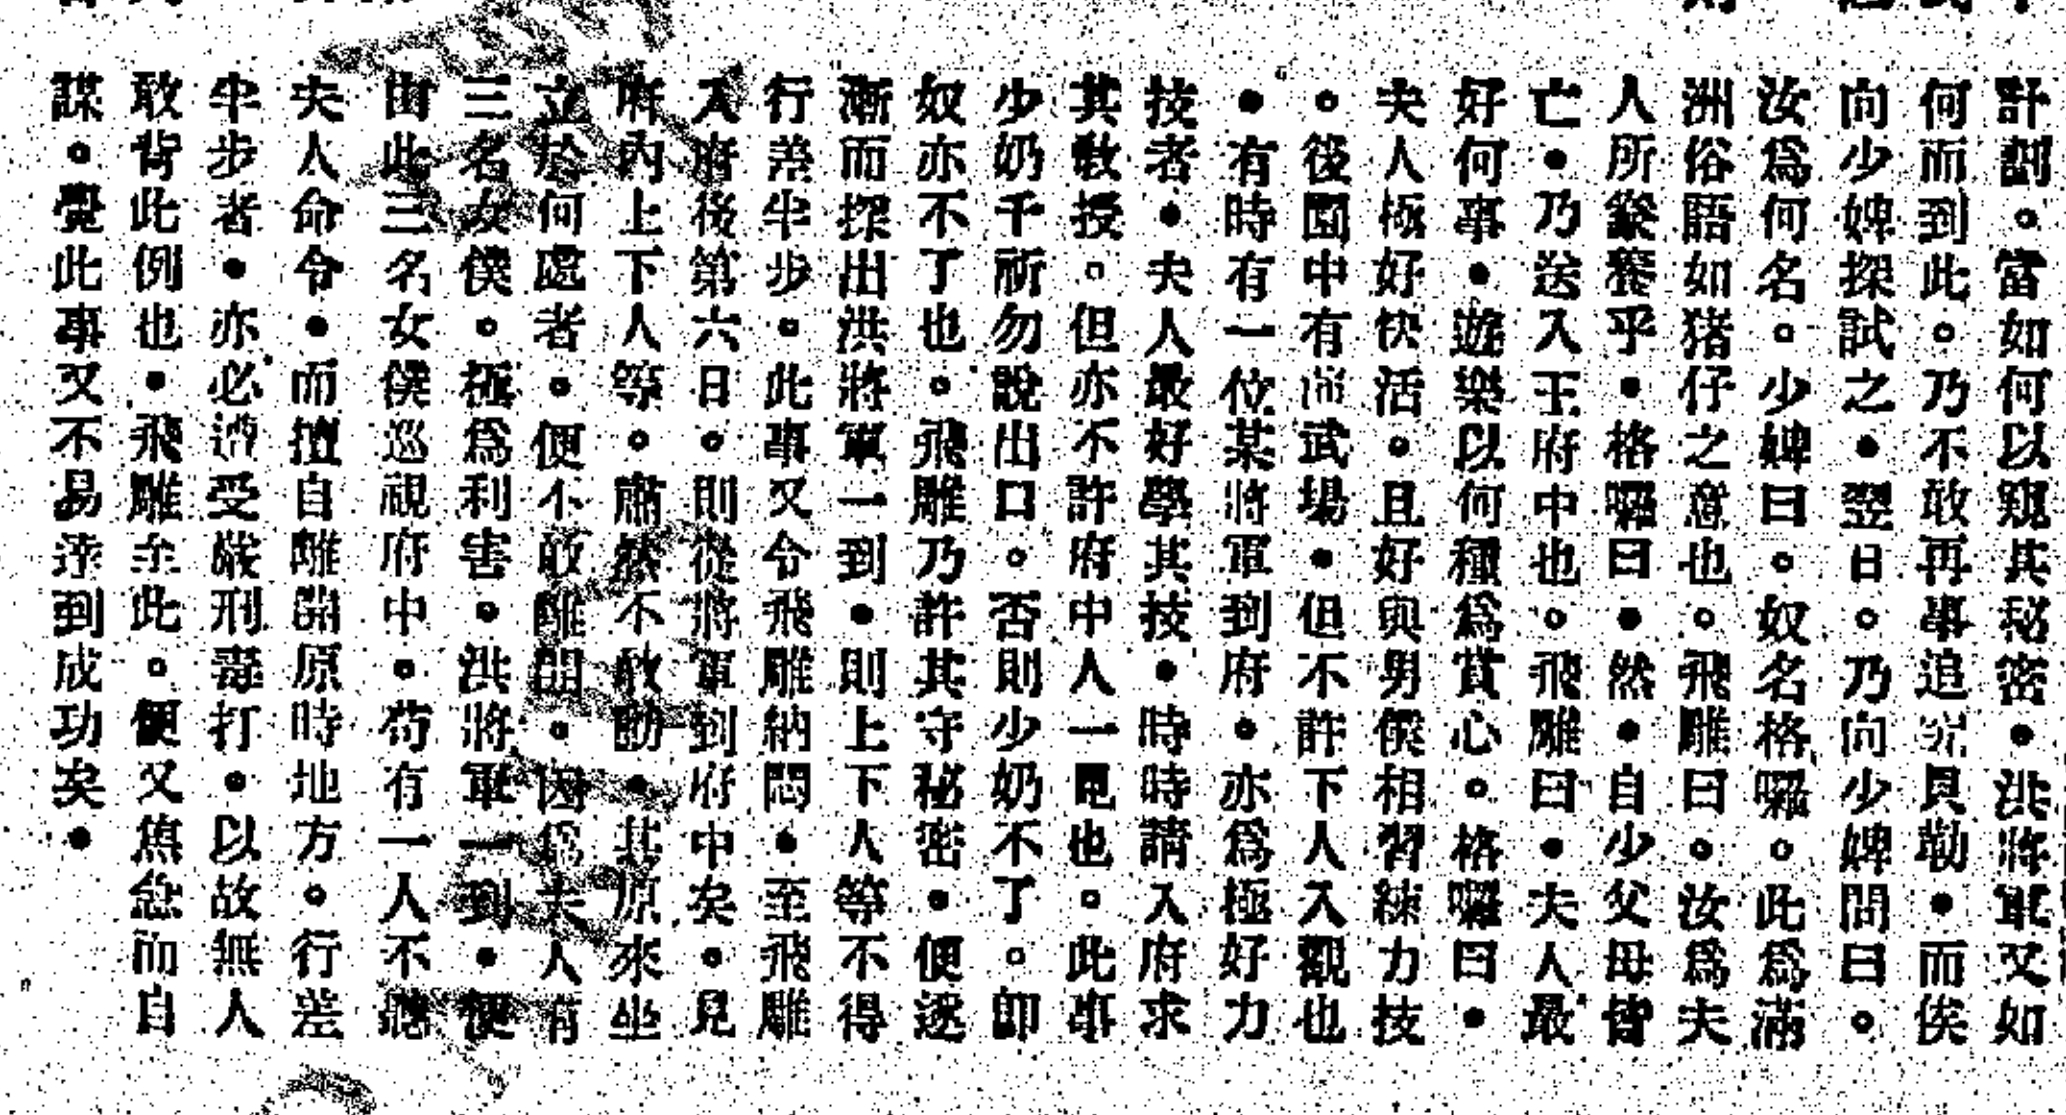 計劃。當如何以窺其秘密・洪將軍又如
何而到此。乃不敢再事追究貝勒・而俟
向少婢探試之・翌日。乃向少婢問曰。
汝爲何名。少婢曰。奴名格囉。此爲滿
洲俗語如猪仔之意也。飛雕曰。汝爲夫
人所豢養乎・格囉曰・然・自少父母皆
亡・乃送入王府中也。飛雕曰・夫人最
好何事・遊樂以何種爲賞心。格囉曰・
夫人極好快活。且好與男僕相習練力技
。後園中有演武場・但不許下人入觀也
・有時有一位某將軍到府・亦爲極好力
技者・夫人最好學其技・時時請入府求
其敎授。但亦不許府中人一見也。此事
少奶千祈勿說出口。否則少奶不了。卽
奴亦不了也。飛雕乃許其守秘密・便逐
漸而探出洪將軍一到・則上下人等不得
行差半步。此事又令飛雕納悶・至飛雕
入府後第六日。則從將軍到府中矣。見
府內上下人等。肅然不敢動・其原來坐
立於何處者。便不敢離開。因爲夫人有
三名女僕。極爲利害・洪將軍一到・便
由此三名女僕巡視府中。苟有一人不聽
夫人命令・而擅自離開原時地方。行差
半步者・亦必遭受嚴刑毒打・以故無人
敢背此例也・飛雕至此。便又焦急而自
謀。覺此事又不易達到成功矣・